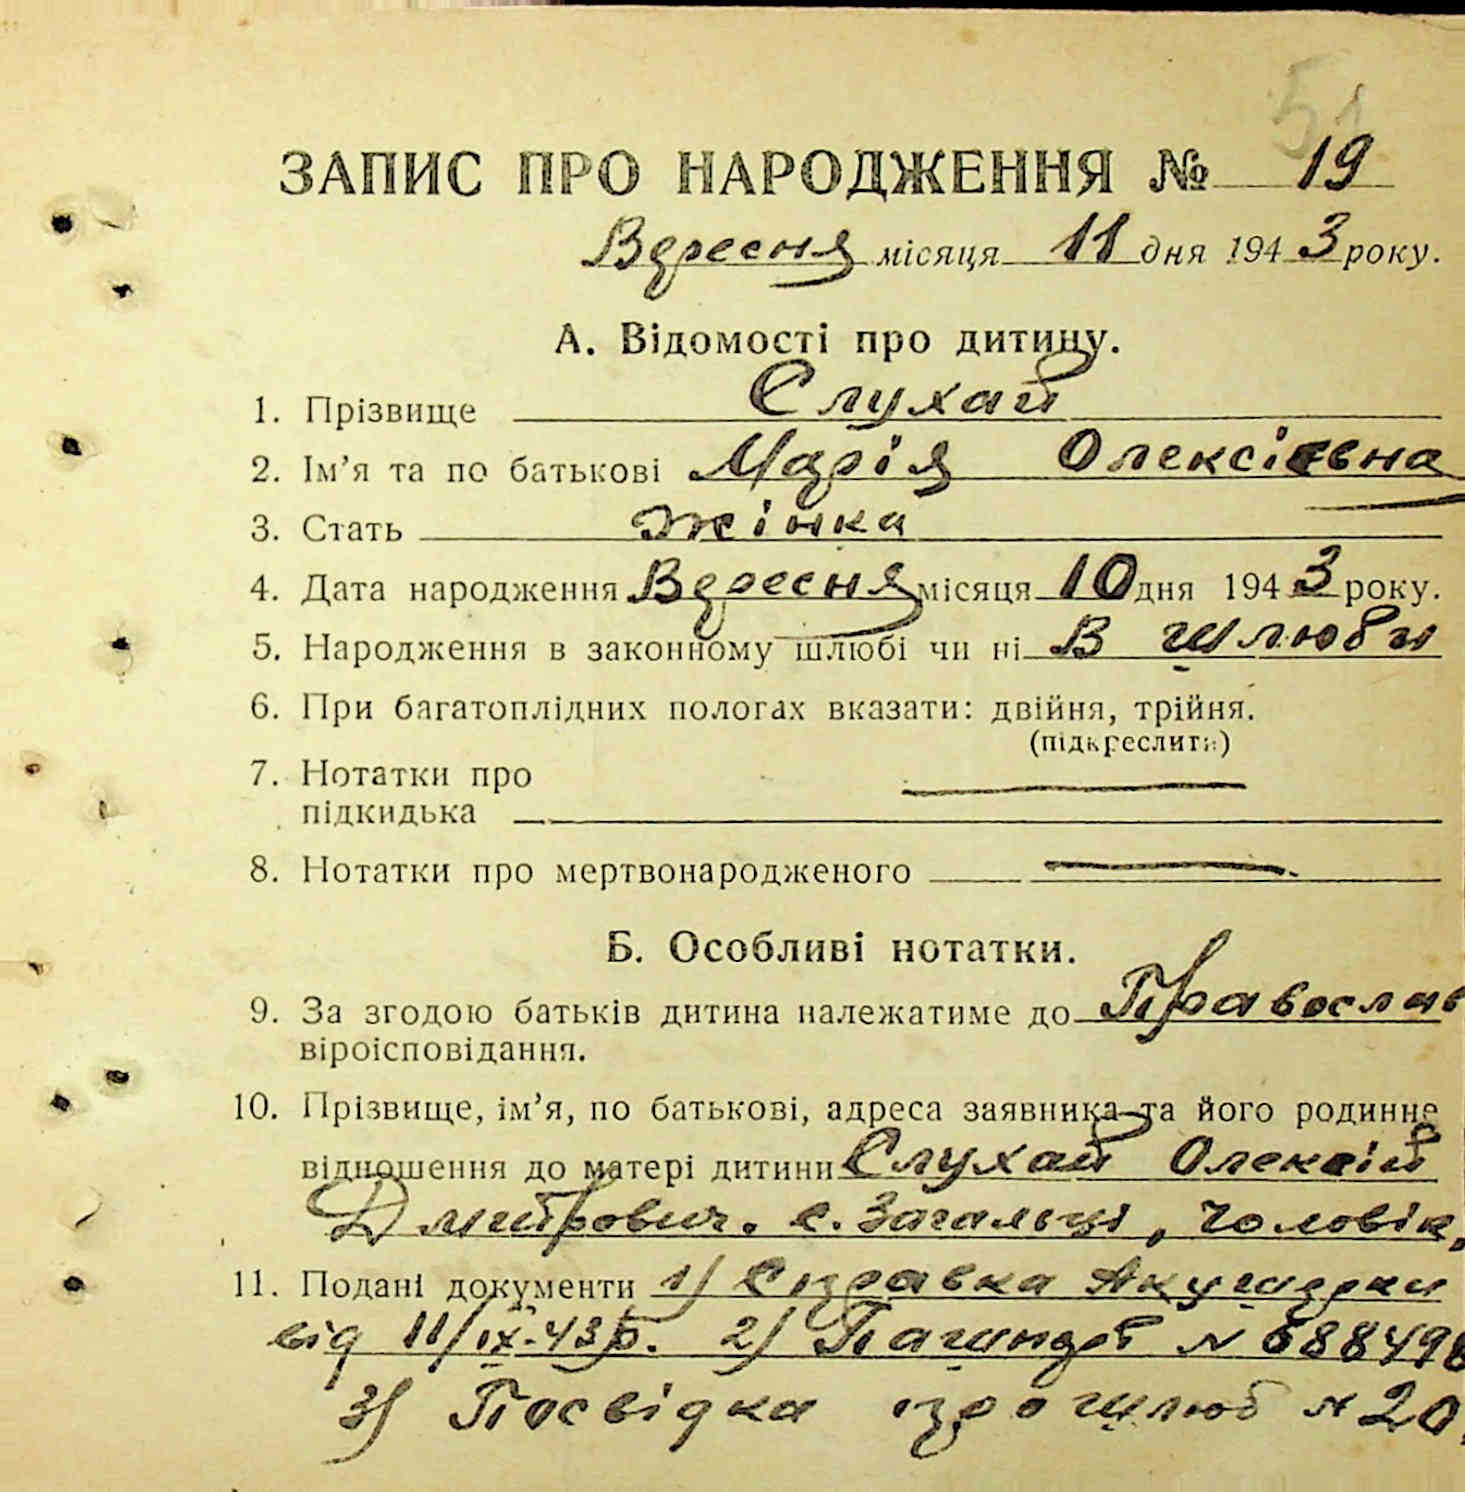 51
ЗАПИС ПРО НАРОДЖЕННЯ № 19
Вересня місяця 11 дня 1943 року.
А. Відомості про дитину.
1. Прізвище Слухай
2. Ім’я та по батькові Марія Олексіевна
3. Стать жінка
4. Дата народження Вересня місяця 10 дня 1943 року.
5. Народження в законному шлюбі чи ні В шлюби
6. При багатоплідних пологах вказати: двійня, трійня.
(підкреслити)
7. Нотатки про
підкидька —
8. Нотатки про мертвонародженого —
Б. Особливі нотатки.
9. За згодою батьків дитина належатиме до Православ
віроісповідання.
10. Прізвище, ім’я, по батькові, адреса заявника та його родинне
відношення до матері дитини Слухай Олексій
Дмитрович. с. Загальці, чоловік,
11. Подані документи 1/ Справка Акушерки
від 11/IX-43р. 2/ Пашпорт N 688498
3/ Посвідка про шлюб N 20